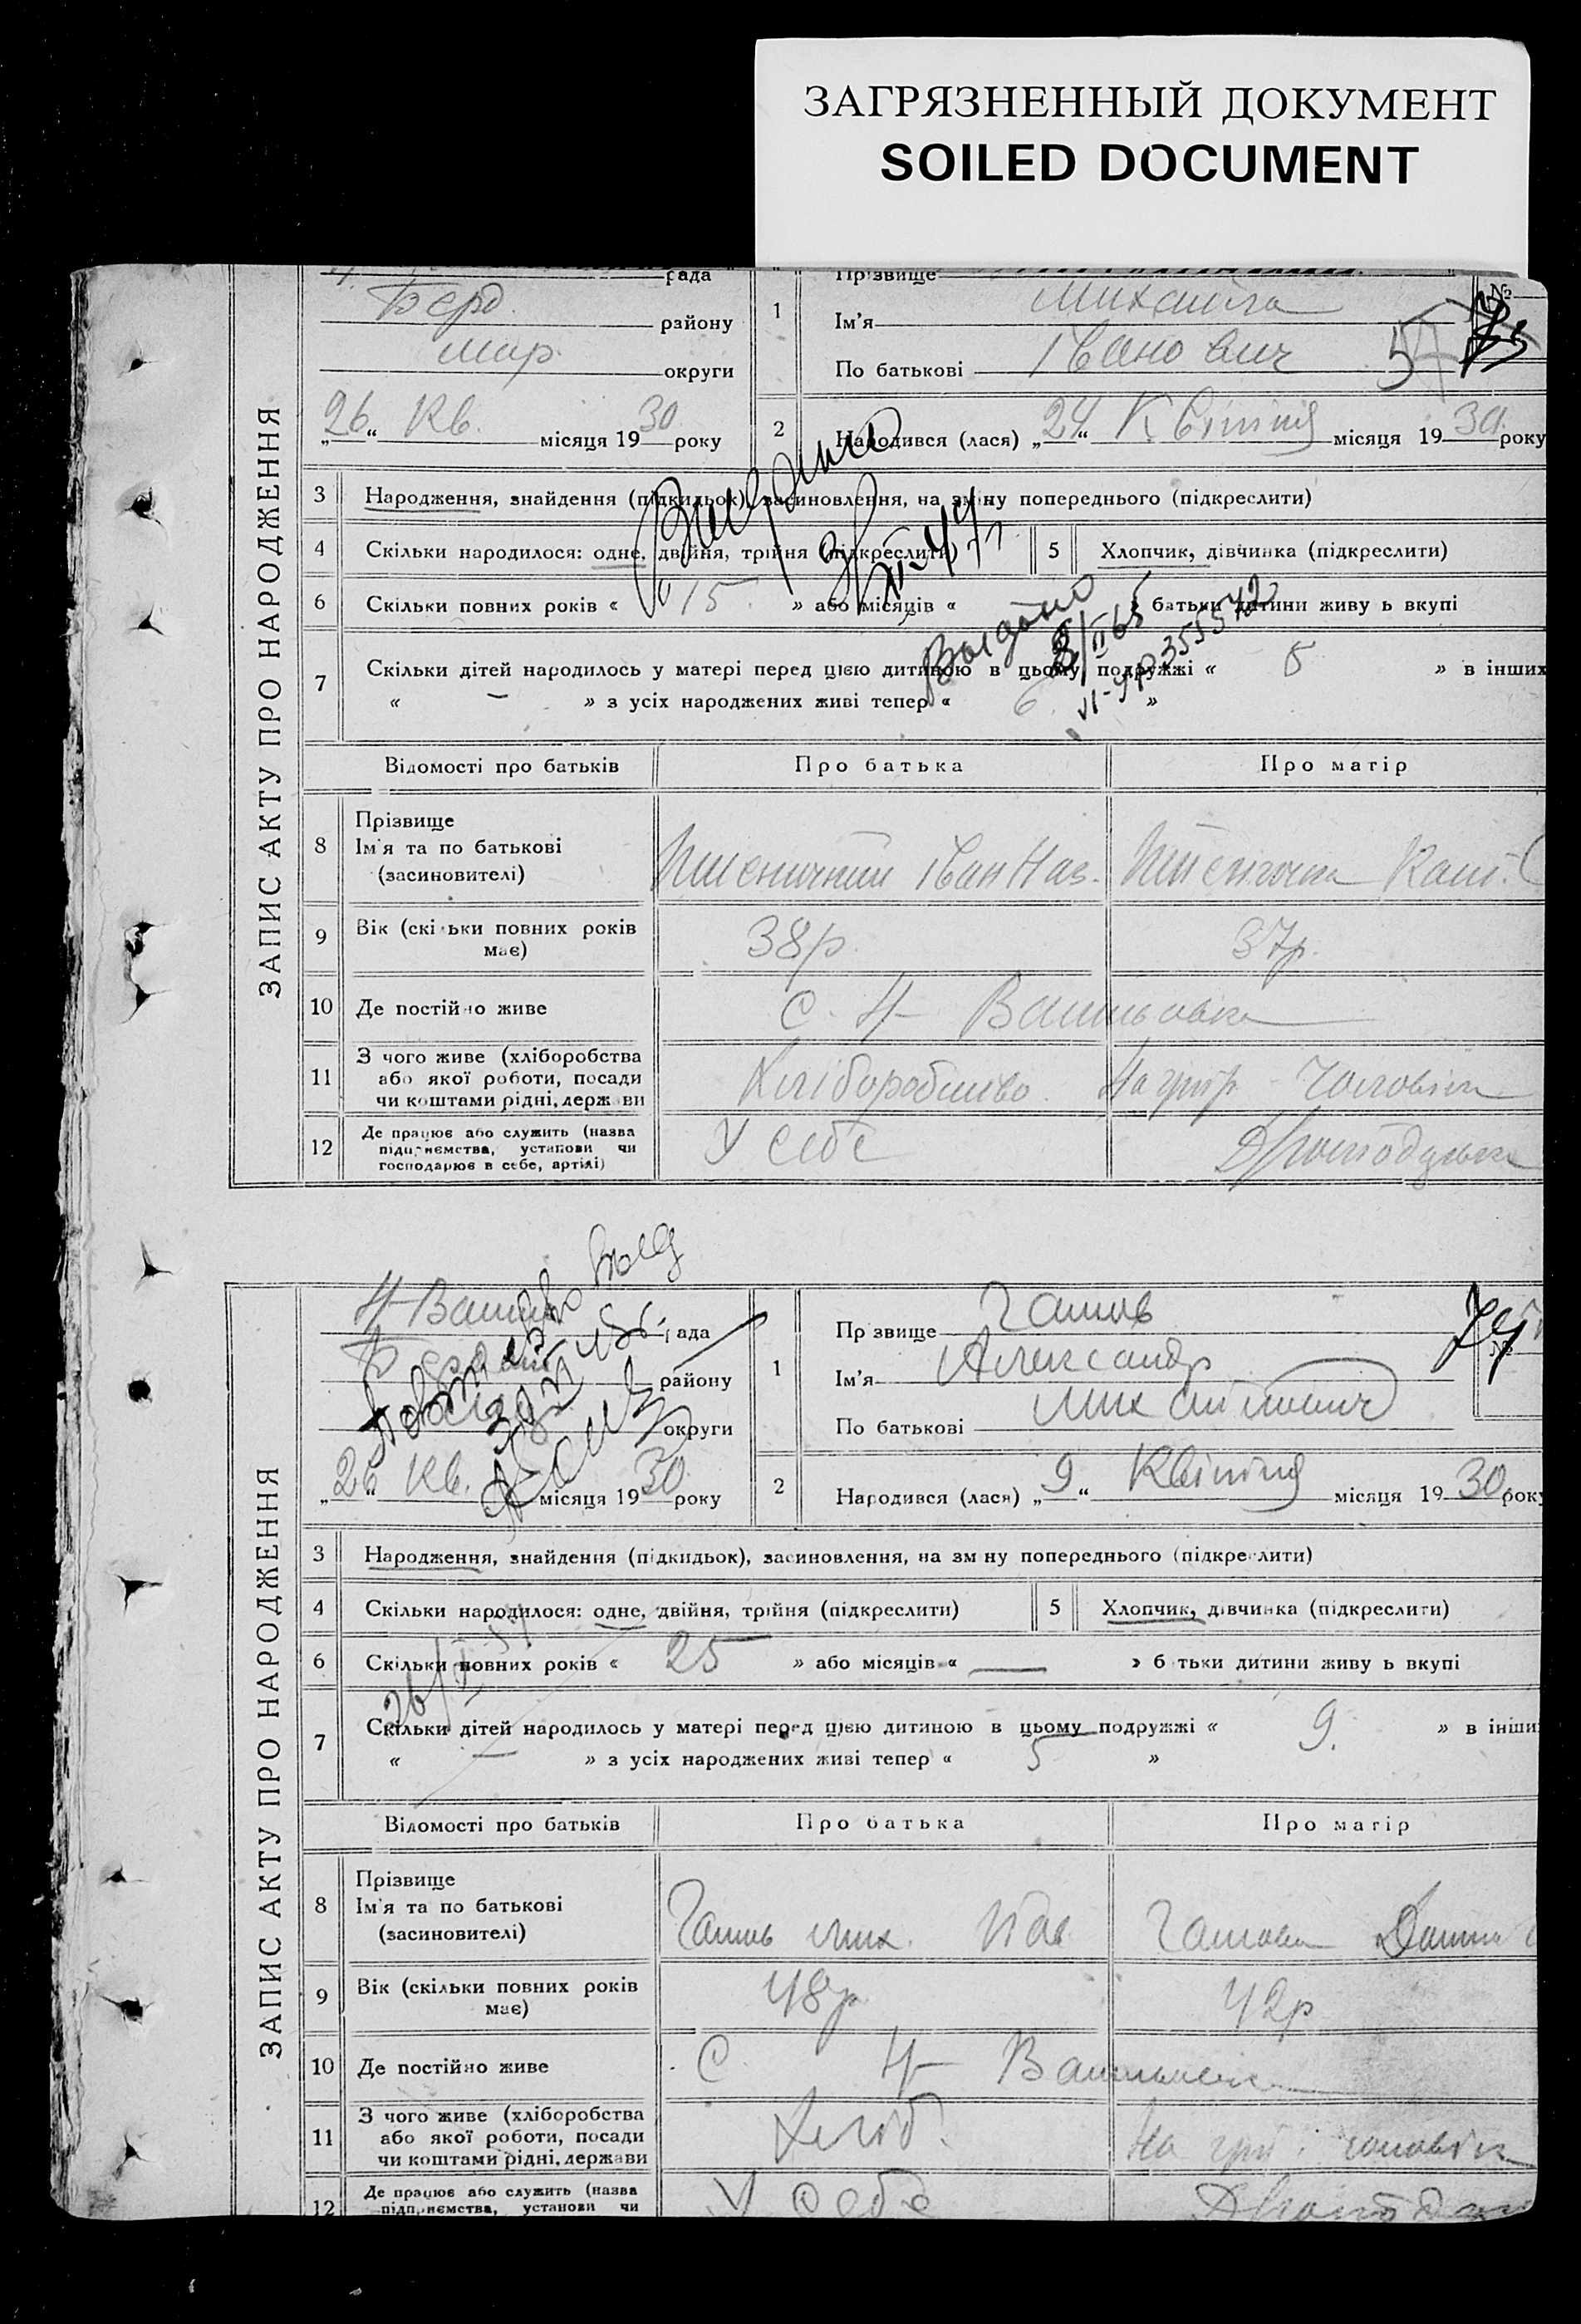 ЗАГРЯЗНЕННЫЙ ДОКУМЕНТ
SOILED DOCUMENT
ЗАПИС АКТУ ПРО НАРОДЖЕННЯ
рада
Берд. району
Мар. округи
„26“ Кв. місяця 1930 року
1
Прізвище
Ім'я Михайло
По батькові Іванович
№
73
2
Народився (лася) „24“ Квітня місяця 1930 року
3 Народження, знайдення (підкидьок), засиновлення, на зміну попереднього (підкреслити)
4 Скільки народилося: одне, двійня, трійня (підкреслити)
5 Хлопчик, дівчинка (підкреслити)
6 Скільки повних років « 15 » або місяців « » батьки дитини живуть вкупі
7 Скільки дітей народилось у матері перед цією дитиною в цьому подружжі « 5 » в інших
« – » з усіх народжених живі тепер « 6 »
Відомості про батьків Про батька Про матір
8 Прізвище
Ім'я та по батькові
(засиновителі)
Пшеничний Іван Наз.
9 Вік (скільки повних років має)
38р. 37р.
10 Де постійно живе
С. Н Васильовка
11 З чого живе (хліборобства
або якої роботи, посади
чи коштами рідні, держави
Хліборобство. На утр. чоловіка
12 Де працює або служить (назва
підприємства, установи чи
господарює в себе, артілі)
У себе
ЗАПИС АКТУ ПРО НАРОДЖЕННЯ
Н-Васил рада
району
округи
„26“ Кв. місяця 1930 року
1
Прізвище
Ім'я Александр
По батькові Михайлович
74
№
2
Народився (лася) „9“ Квітня місяця 1930 року
3 Народження, знайдення (підкидьок), засиновлення, на зміну попереднього (підкреслити)
4 Скільки народилося: одне, двійня, трійня (підкреслити)
5 Хлопчик, дівчинка (підкреслити)
6 Скільки повних років « 25 » або місяців « — » батьки дитини живуть вкупі
7 Скільки дітей народилось у матері перед цією дитиною в цьому подружжі « 9. » в інших
« — » з усіх народжених живі тепер « 5 »
Відомості про батьків Про батька Про матір
8 Прізвище
Ім'я та по батькові
(засиновителі)
Мих. Пав.
9 Вік (скільки повних років має)
48р 42р
10 Де постійно живе
С Н Васильовка
11 З чого живе (хліборобства
або якої роботи, посади
чи коштами рідні, держави
Хліб. На чоловіка
12 Де працює або служить (назва
підприємства, установи чи
У себе